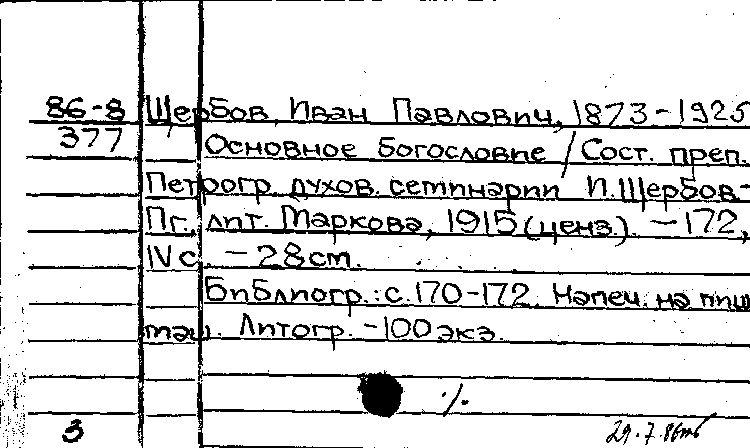 86-8 Щербов, Иван Павлович, 1873-1925
377 Основное богословие / Сост. преп.
Петрогр. духов. семинарии И. Щербов.-
Пг., лит. Маркова, 1915 (ценз.). - 172,
IV с. - 28 см.
Библиогр.: с. 170-172. Напеч. на пиш.
маш. Литогр. - 100 экз.
./.
3 29.7.86